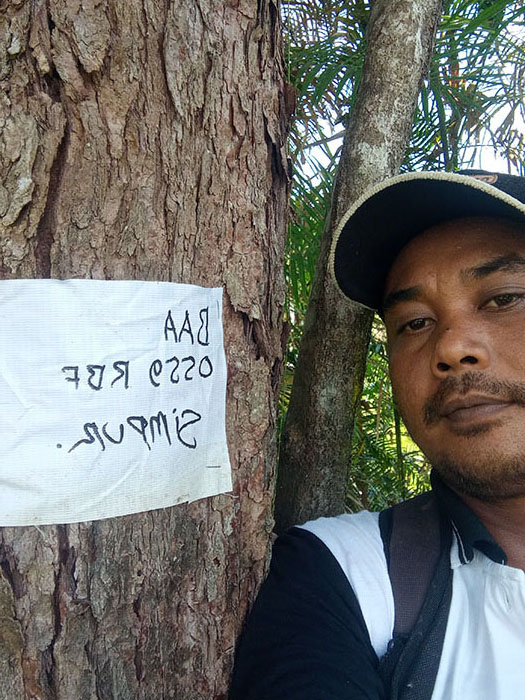 BAA
0559 RBF
SimPUR.